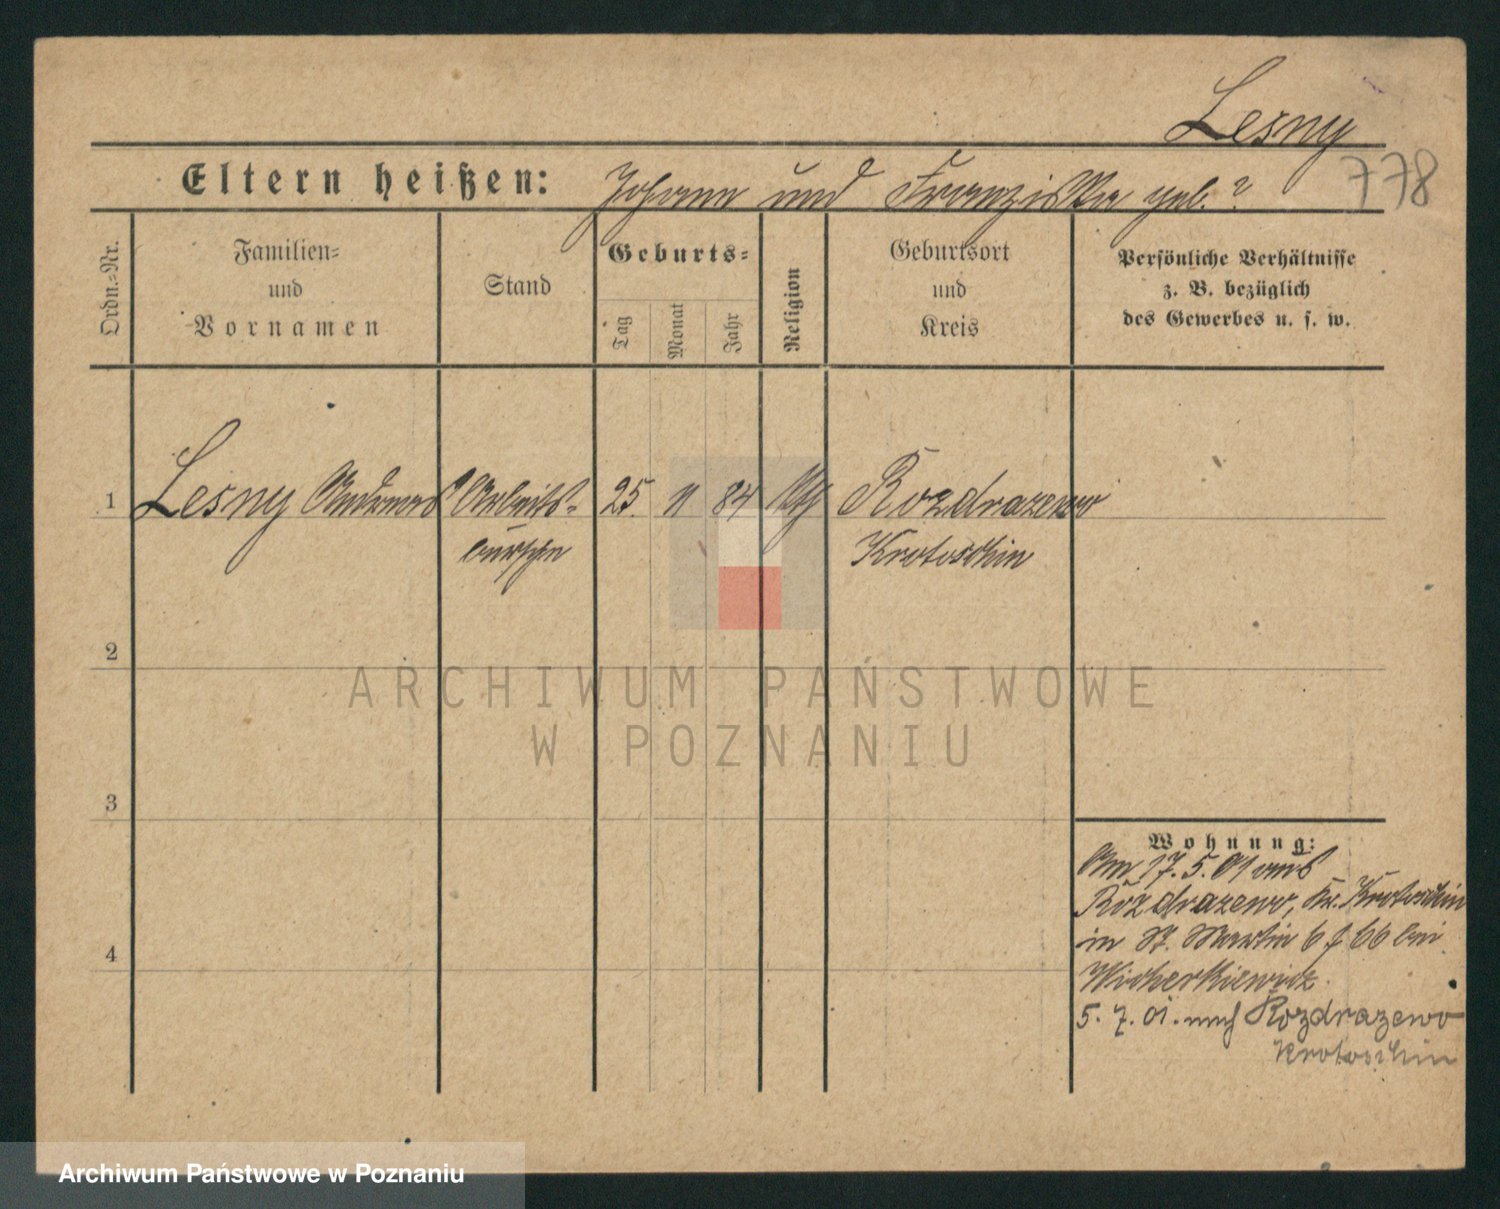 Lesny
778
Eltern heißen: Johann und Franziska geb. ?
Ordn.-Nr.
Familien-
und
Vornamen
Stand
Geburts-
Tag
Monat
Jahr
Religion
Geburtsort
und
Kreis
Persönliche Verhältnisse
z. B. bezüglich
des Gewerbes u. s. w.
1 Lesny Andreas Arbeits- 25. 11 84 kth Rozdrazewo
bursche Krotoschin
2
3
4
Wohnung:
Am 17. 5. 01 aus
Rozdrazewo, Kr. Krotoschin
in St. Martin 6 f 66 bei
Wicherkiewicz
5. 7. 01. nach Rozdrazewo
Krotoschin
ARCHIWUM PAŃSTWOWE
W POZNANIU
Archiwum Państwowe w Poznaniu